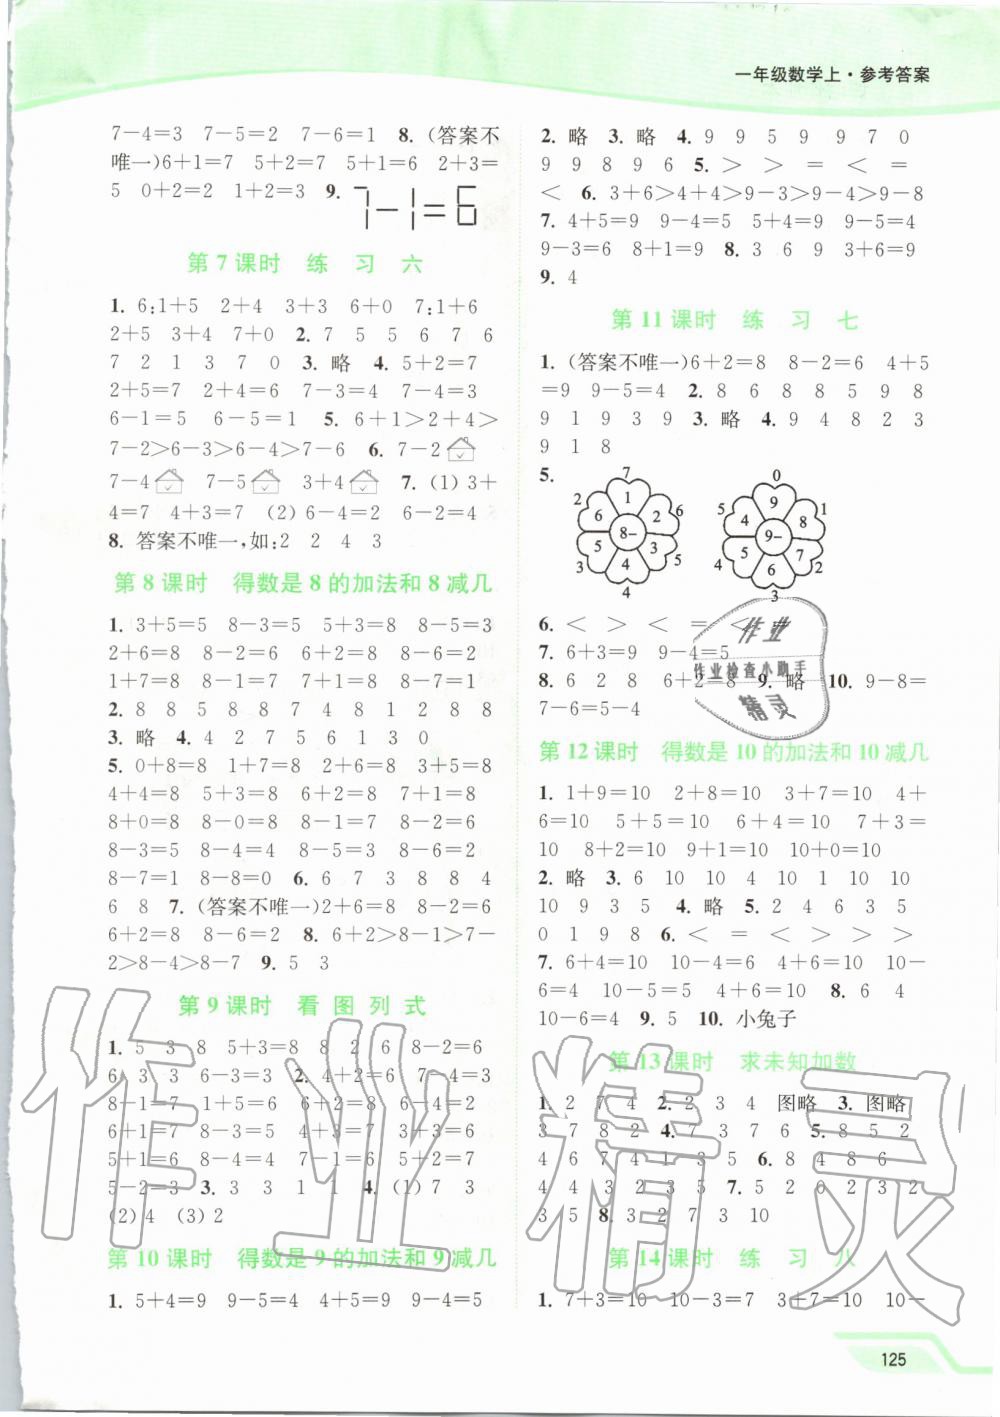 一年级数学上·参考答案
7-4=3 7-5=2 7-6=1 8. (答案不
唯一)6+1=7 5+2=7 4+2=6 2+3=
5 0+2=2 1+2=3 9. 7-1=6
第7课时 练 习 六
1. 6:1+5 2+4 3+3 6+0 7:1+6
2+5 3+4 7+0 2. 7 5 5 6 7 6
7 2 1 3 7 0 3. 略 4. 5+2=7
2+5=7 2+4=6 7-3=4 7-4=3
6-1=5 6-5=1 5. 6+1>2+4>
7-2>6-3>6-4>7-6 6. 7-2
7-4 7-5 3+4 7. (1) 3+
4=7 4+3=7 (2) 6-4=2 6-2=4
8. 答案不唯一,如:2 2 4 3
第8课时 得数是8的加法和8减几
1. 3+5=5 8-3=5 5+3=8 8-5=3
2+6=8 8-2=6 6+2=8 8-6=2
1+7=8 8-1=7 7+1=8 8-7=1
2. 8 8 5 8 8 7 4 8 1 2 8 8
3. 略 4. 4 2 7 5 6 1 3 0
5. 0+8=8 1+7=8 2+6=8 3+5=8
4+4=8 5+3=8 6+2=8 7+1=8
8+0=8 8-0=8 8-1=7 8-2=6
8-3=5 8-4=4 8-5=3 8-6=2
8-7=1 8-8=0 6. 6 7 3 8 8 4
6 8 7. (答案不唯一)2+6=8 8-2=6
6+2=8 8-6=2 8. 6+2>8-1>7-
2>8-4>8-7 9. 5 3
第9课时 看 图 列 式
1. 5 3 8 5+3=8 8 2 6 8-2=6
6 3 3 6-3=3 2. 4+2=6 7-4=3
8-1=7 7-1=6 6+2=8 6-2=4
6+1=7 8-3=5 4+4=8 3+3=6
5+1=6 8-4=4 7-1=6 5+2=7
5-2=3 3. 3 3 1 1 4. (1) 7 3
(2)4 (3)2
第10课时 得数是9的加法和9减几
1. 5+4=9 9-5=4 4+5=9 9-4=5
2. 略 3. 略 4. 9 9 5 9 9 7 0
9 9 8 9 6 5. > > = < =
< 6. 3+6>4+4>9-3>9-4>9-8
7. 4+5=9 9-4=5 5+4=9 9-5=4
9-3=6 8+1=9 8. 3 6 9 3+6=9
9. 4
第11课时 练 习 七
1. (答案不唯一)6+2=8 8-2=6 4+5
=9 9-5=4 2. 8 6 8 8 5 9 8
9 1 9 3 9 3. 略 4. 9 4 8 2 3
9 1 8
5. 7 2 6 3 5 4 1 6 2 5 3 4 8-
0 5 1 4 2 3 9 4 8 5 7 6 9-
6. < > < = <
7. 6+3=9 9-4=5
8. 6 2 8 6+2=8 9. 略 10. 9-8=
7-6=5-4
作业
作业检查小助手
精灵
第12课时 得数是10的加法和10减几
1. 1+9=10 2+8=10 3+7=10 4+
6=10 5+5=10 6+4=10 7+3=
10 8+2=10 9+1=10 10+0=10
2. 略 3. 6 10 10 4 10 1 10 10
10 9 3 5 4. 略 5. 2 4 6 3 5
0 1 9 8 6. < = < > > >
7. 6+4=10 10-4=6 4+6=10 10-
6=4 10-5=5 9-2=7 10-6=4 8. 6 4
10-6=4 9. 5 10. 小兔子
第13课时 求未知加数
1. 2 7 4 2. 2 3 4 图略 3. 图略
3 7 8 2 4. 7 3 7 6 5. 8 5 2
4 6 7 4 1 3 5 6. 8 4 8 6
4 4 3 2 3 5 7. 5 2 0 2 3 2
3 5 8. 3 2 7 3 10
第14课时 练 习 八
1. 7+3=10 10-3=7 3+7=10 10-
125
作业精灵